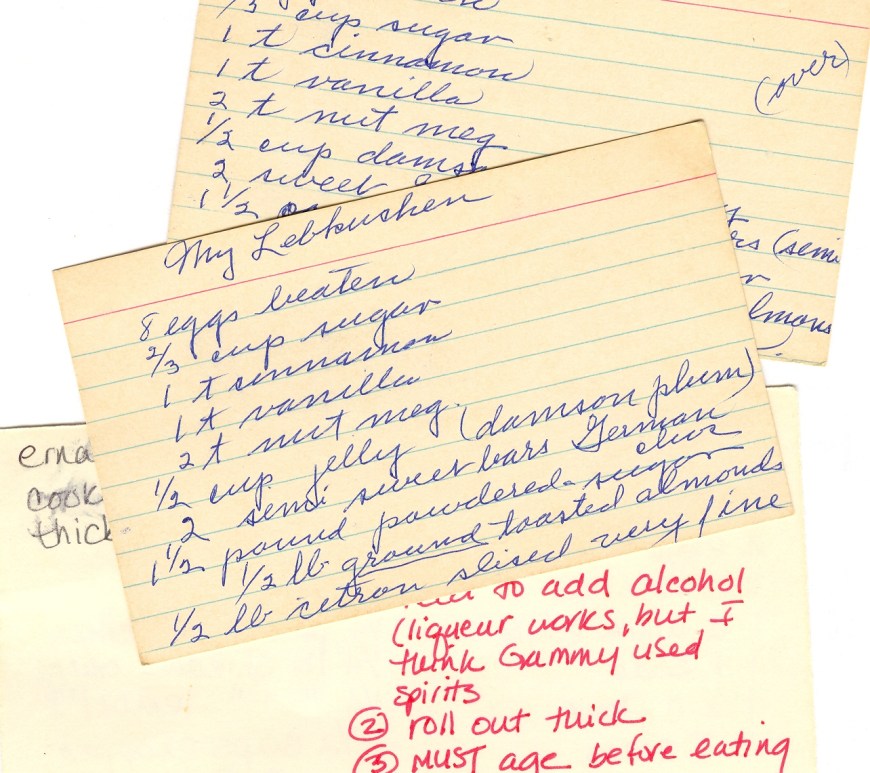 2/3 cup sugar
1 t cinnamon
1 t vanilla
2 t nut meg
1/2 cup dams
2 sweet
1 1/2
(over)
rs (semi
lmons
My Lebkuchen
8 eggs beaten
2/3 cup sugar
1 t cinnamon
1 t vanilla
2 t nut meg.
1/2 cup jelly (damson plum)
2 semi sweet bars German
1 1/2 pound powdered sugar
1/2 lb ground toasted almonds
1/2 lb citron slised very fine
erna
cook
thick
to add alcohol
(liqueur works, but I
think Gammy used
spirits
② roll out thick
③ MUST age before eating